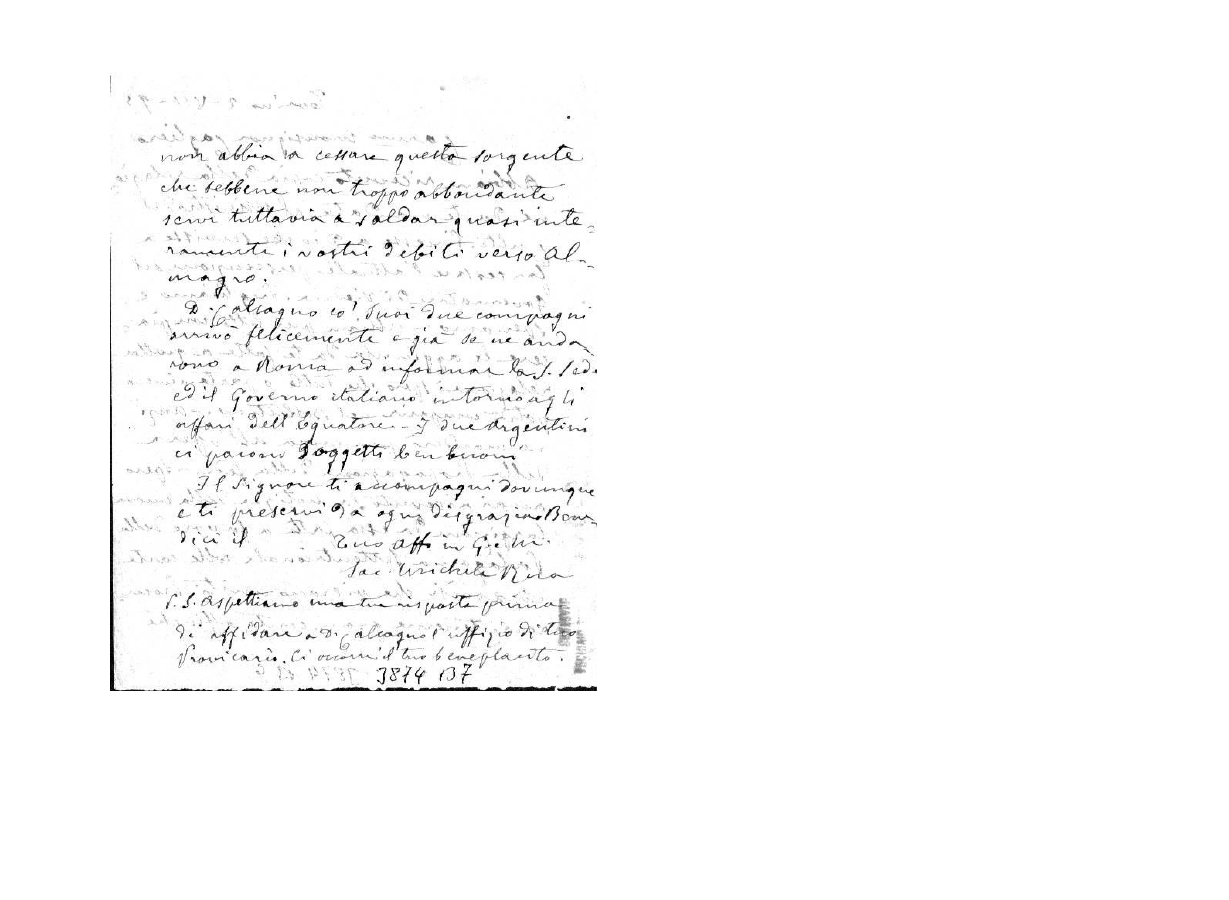 non abbia a cessare questa sorgente
che sebbene non troppo abbondante
servì tuttavia a saldar quasi inte-
ramente i vostri debiti verso Al-
magro.
D. Calcagno co' suoi due compagni
arrivò felicemente e già se ne anda
rono a Roma ad informar la S. Sede
ed il Governo italiano intorno agli
affari dell'Equatore - I due Argentini
ci paiono soggetti ben buoni
Il Signore ti accompagni dovunque
e ti preservi da ogni disgrazia Bene-
dici il Tuo Aff in G. e M.
Sac. Michele Rua
P.S. Aspettiamo una tua risposta prima
di affidare a D. Calcagno l'uffizio di tuo
Provicario. Ci occorre il tuo beneplacito.
3874 B7